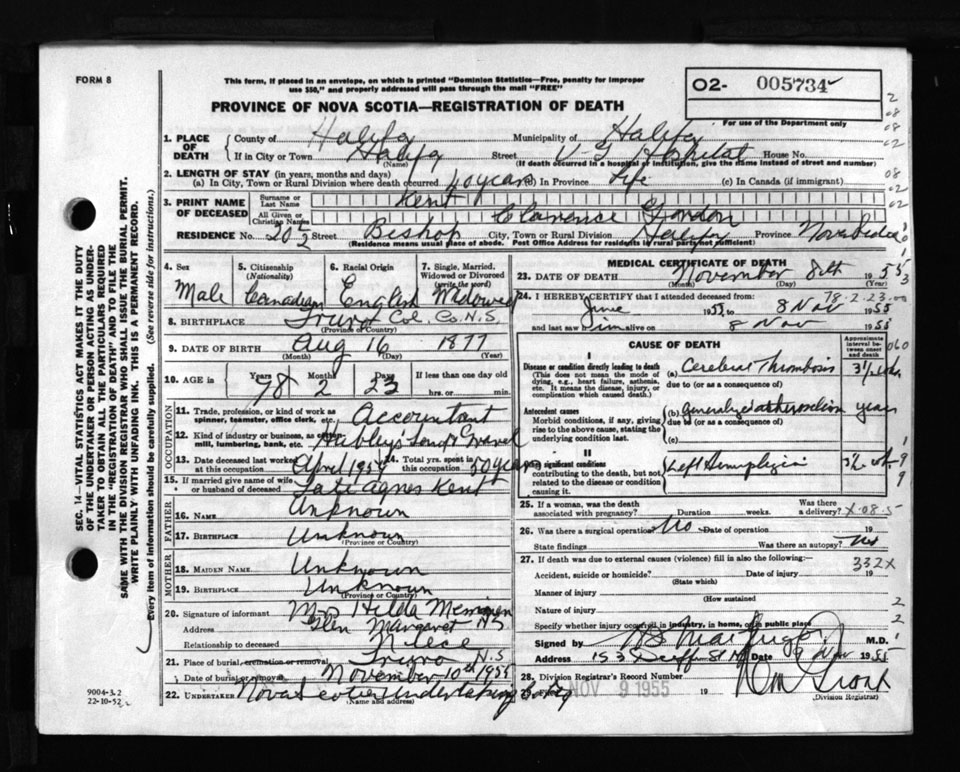 FORM 8
This form, if placed in an envelope, on which is printed "Dominion Statistics—Free, penalty for improper
use $50," and properly addressed will pass through the mail "FREE"
O2- 005734
PROVINCE OF NOVA SCOTIA—REGISTRATION OF DEATH
For use of the Department only
1. PLACE OF DEATH
County of Halifax Municipality of Halifax
If in City or Town Halifax Street V-G Hospital House No.
(Name) (If death occurred in a hospital or institution, give the name instead of street and number)
2. LENGTH OF STAY (in years, months and days)
(a) In City, Town or Rural Division where death occurred 40 years (b) In Province Life (c) In Canada (if immigrant)
3. PRINT NAME OF DECEASED
Surname or Last Name Kent
All Given or Christian Names Clarence Gordon
RESIDENCE No. 20 1/2 Street Bishop City, Town or Rural Division Halifax Province Nova Scotia
(Residence means usual place of abode. Post Office Address for residents in rural parts not sufficient)
4. Sex Male
5. Citizenship (Nationality) Canadian
6. Racial Origin English
7. Single, Married, Widowed or Divorced (write the word) Widowed
8. BIRTHPLACE Truro Col. Co. N.S.
(Province or Country)
9. DATE OF BIRTH Aug 16 1877
(Month) (Day) (Year)
10. AGE in Years 78 Months 2 Days 23 If less than one day old
hrs. or min.
OCCUPATION
11. Trade, profession, or kind of work as spinner, teamster, office clerk, etc. Accountant
12. Kind of industry or business, as cotton mill, lumbering, bank, etc. Hubley's Sand & Gravel
13. Date deceased last worked at this occupation April 1954
14. Total yrs. spent in this occupation 50 years
15. If married give name of wife or husband of deceased Late Agnes Kent
FATHER
16. NAME Unknown
17. BIRTHPLACE Unknown
(Province or Country)
MOTHER
18. MAIDEN NAME Unknown
19. BIRTHPLACE Unknown
(Province or Country)
20. Signature of informant Mrs Hilda
Address Glen Margaret NS
Relationship to deceased Niece
21. Place of burial, cremation or removal Truro N.S.
Date of burial or removal November 10th 1955
22. UNDERTAKER Nova Scotia Undertaking
(Name and address)
MEDICAL CERTIFICATE OF DEATH
23. DATE OF DEATH November 8th 1955
(Month) (Day)
78-2-23
24. I HEREBY CERTIFY that I attended deceased from:
June 1955 to 8 Nov 1955
and last saw him alive on 8 Nov 1955
CAUSE OF DEATH
Approximate interval between onset and death
I
Disease or condition directly leading to death (a) Cerebral Thrombosis
(This does not mean the mode of dying, e.g., heart failure, asthenia, etc. It means the disease, injury, or complication which caused death.)
due to (or as a consequence of)
Antecedent causes (b) generalized atherosclerosis years
Morbid conditions, if any, giving rise to the above cause, stating the underlying condition last.
due to (or as a consequence of)
(c)
II
Other significant conditions contributing to the death, but not related to the disease or condition causing it. Left Hemiplegia
25. If a woman, was the death associated with pregnancy? Duration weeks. Was there a delivery?
26. Was there a surgical operation? No Date of operation 19
State findings Was there an autopsy?
27. If death was due to external causes (violence) fill in also the following:
332X
Accident, suicide or homicide? Date of injury 19
(State which)
Manner of injury
(How sustained
Nature of injury
Specify whether injury occurred in industry, in home, or in public place
Signed by M.D.
Address 153 Date 9 Nov 1955
28. Division Registrar's Record Number
29. Filed NOV 9 1955 19
(Division Registrar)
SEC. 14—VITAL STATISTICS ACT MAKES IT THE DUTY
OF THE UNDERTAKER OR PERSON ACTING AS UNDERTAKER
TO OBTAIN ALL THE PARTICULARS REQUIRED
IN THE "REGISTRATION OF DEATH" AND TO FILE THE
SAME WITH THE DIVISION REGISTRAR WHO SHALL ISSUE THE BURIAL PERMIT.
WRITE PLAINLY WITH UNFADING INK. THIS IS A PERMANENT RECORD.
Every item of information should be carefully supplied. (See reverse side for instructions.)
9004-3.2
22-10-52